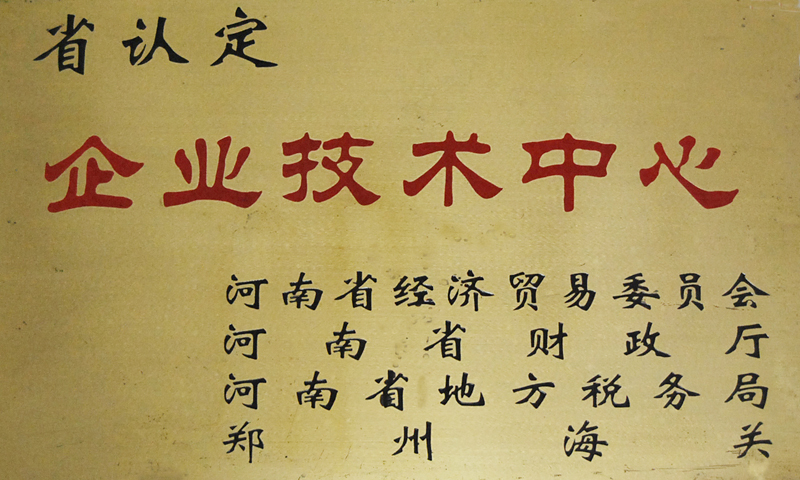 省认定
企业技术中心
河南省经济贸易委员会
河南省财政厅
河南省地方税务局
郑州海关